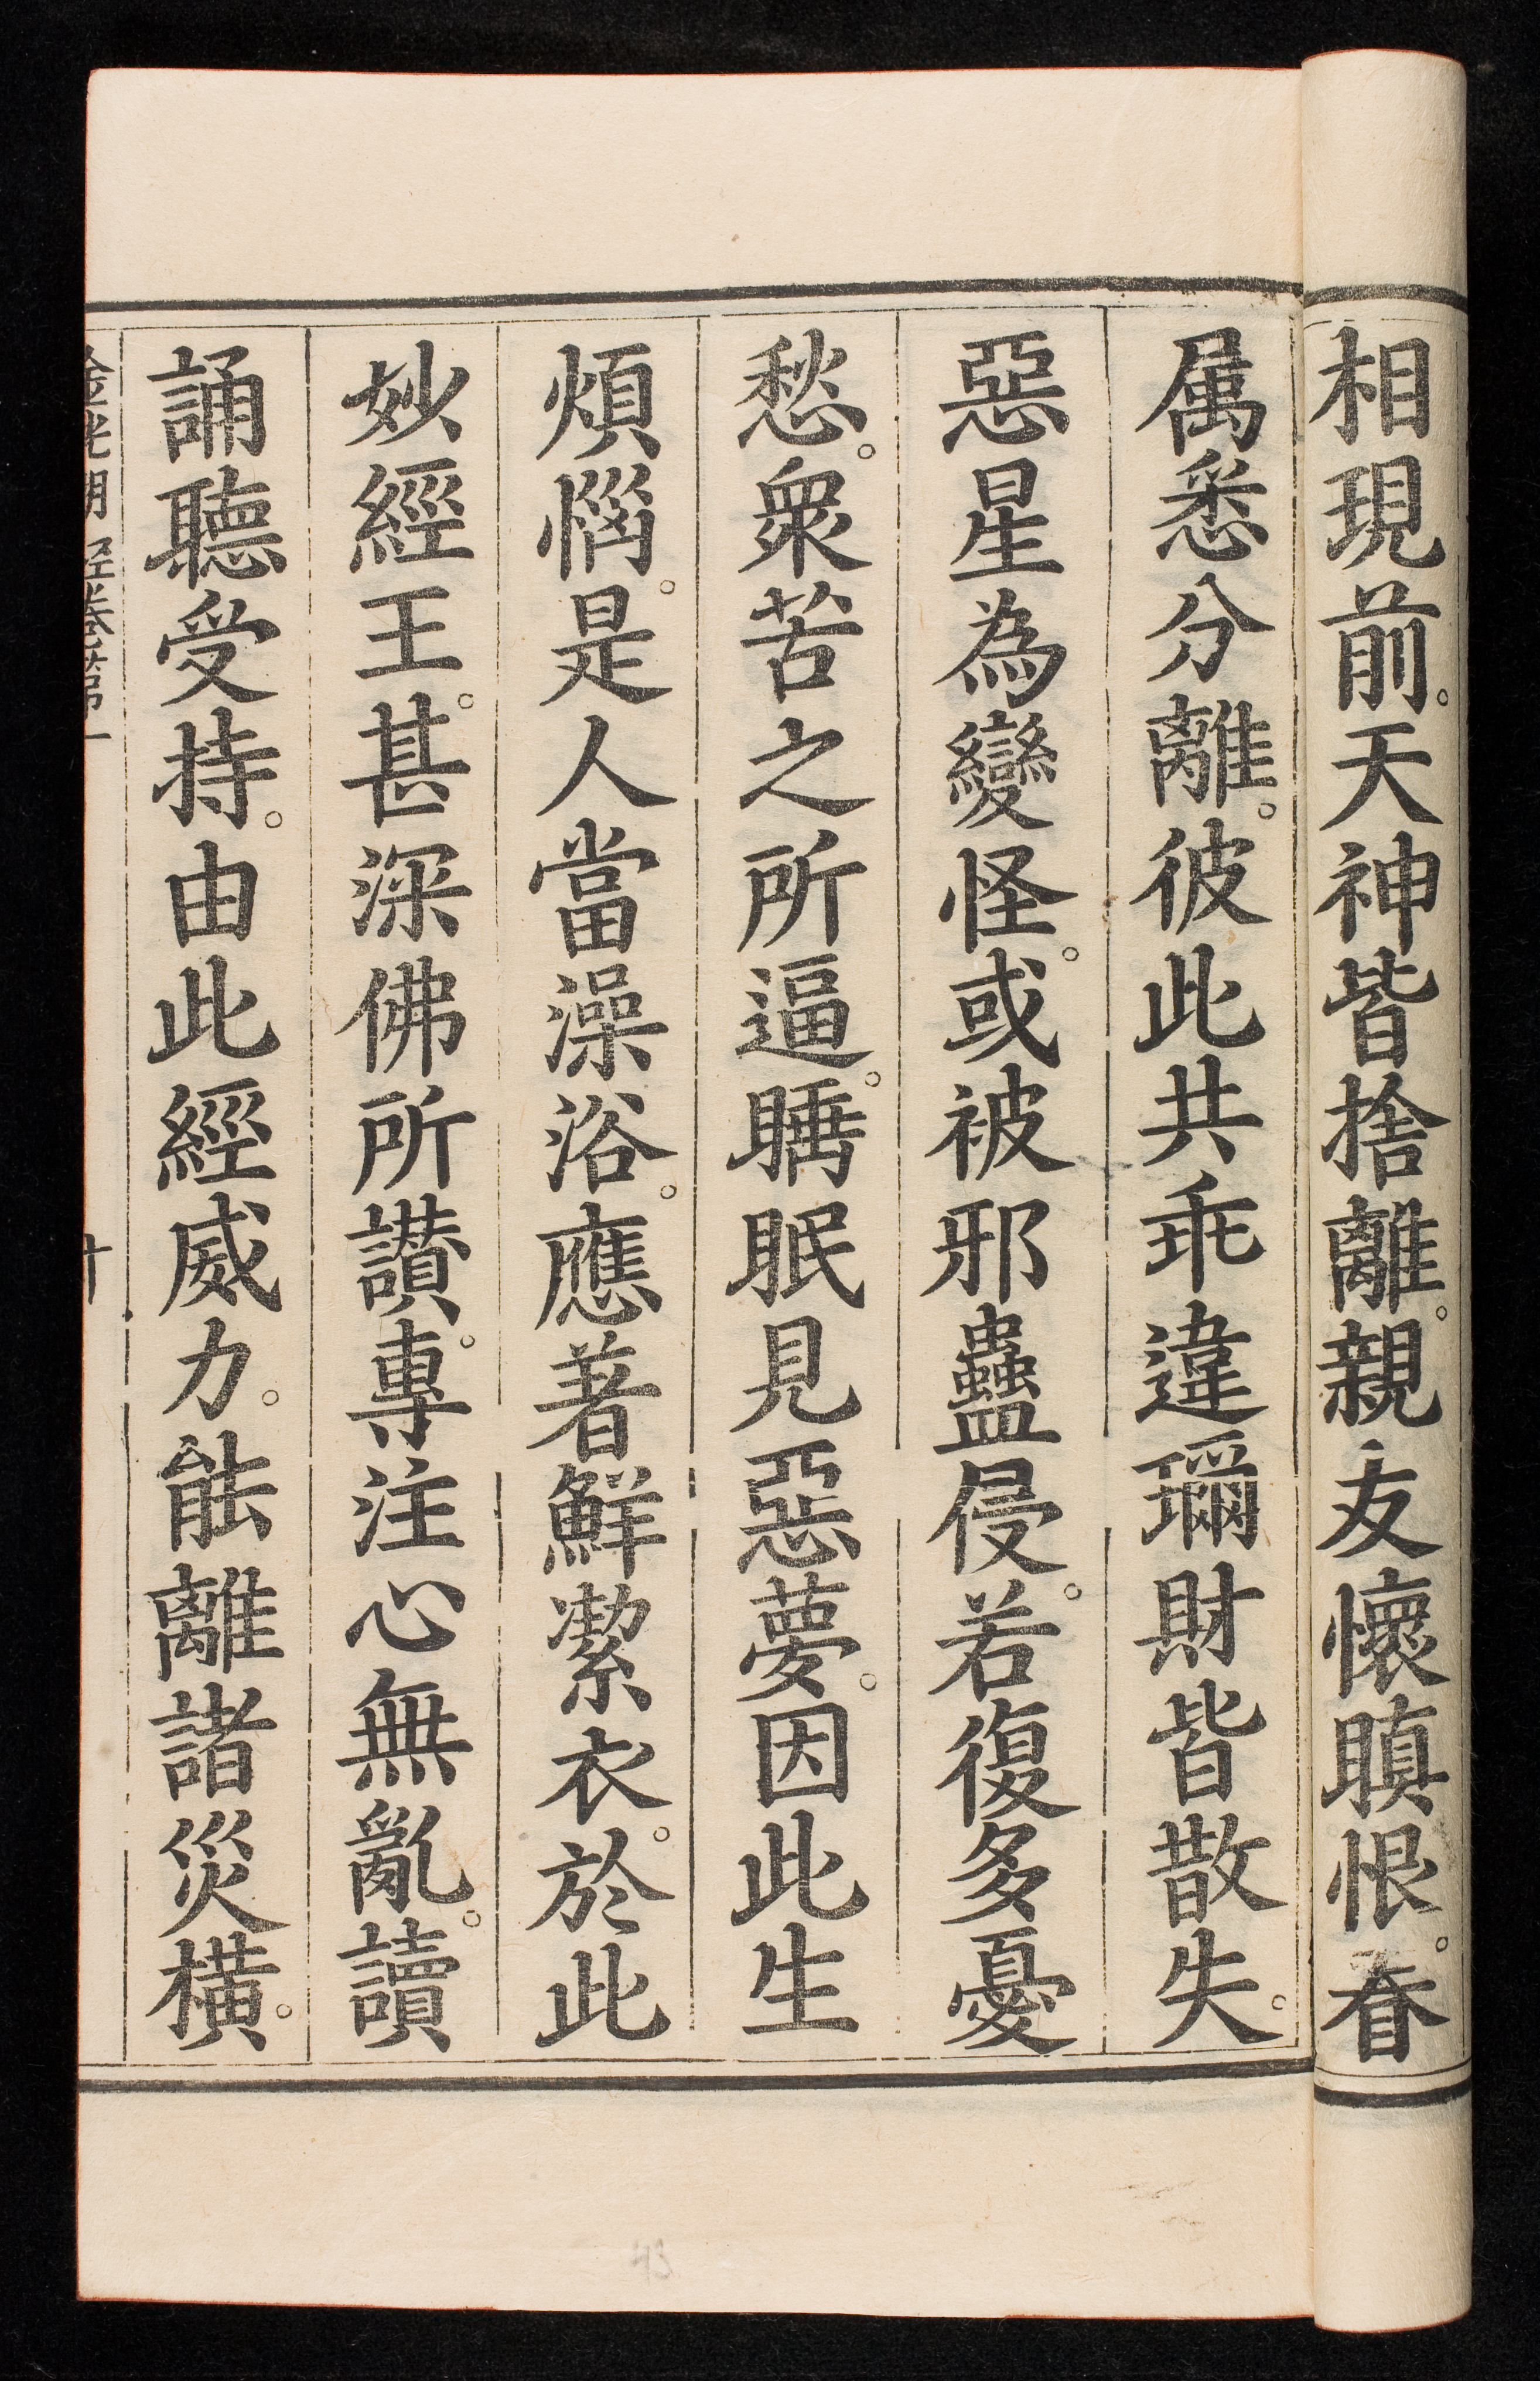 相現前。天神皆捨離。親友懷瞋恨。眷
属悉分離。彼此共乖違。珎財皆散失。
惡星為變怪。或被邪蠱侵。若復多憂
愁。衆苦之所逼。睡眠見惡夢。因此生
煩惱。是人當澡浴。應著鮮潔衣。於此
妙經王。甚深佛所讃。專注心無亂。讀
誦聽受持。由此經威力。能離諸災橫。
金光明經卷第一 十